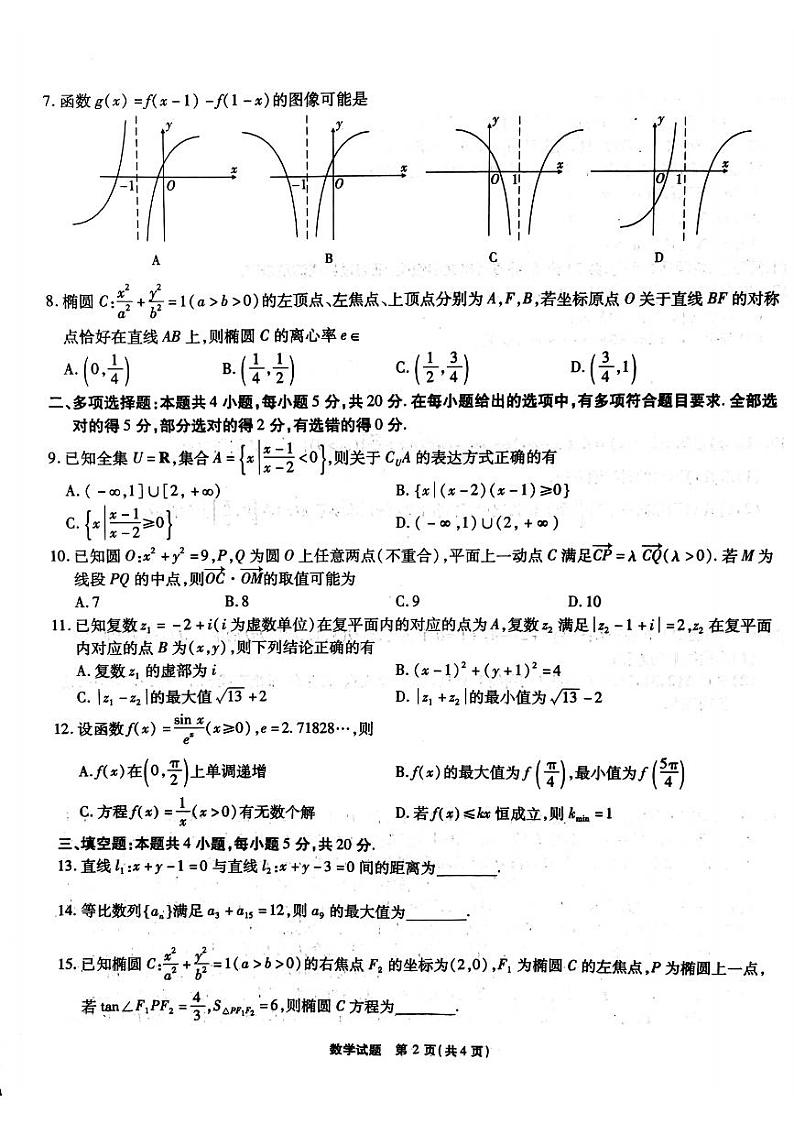 7. 函数 g(x) =f(x-1) -f(1-x)的图像可能是
y y y y
x x x x
-1 O -1 O O 1 O 1
A B C D
8. 椭圆 C: x²/a² + y²/b² =1(a>b>0)的左顶点、左焦点、上顶点分别为 A,F,B,若坐标原点 O 关于直线 BF 的对称
点恰好在直线 AB 上,则椭圆 C 的离心率 e∈
A. (0, 1/4) B. (1/4, 1/2) C. (1/2, 3/4) D. (3/4, 1)
二、多项选择题:本题共 4 小题,每小题 5 分,共 20 分. 在每小题给出的选项中,有多项符合题目要求. 全部选
对的得 5 分,部分选对的得 2 分,有选错的得 0 分.
9. 已知全集 U=R,集合 A={x | (x-1)/(x-2) <0},则关于 ∁UA 的表达方式正确的有
A. (-∞,1]∪[2,+∞) B. {x|(x-2)(x-1)≥0}
C. {x | (x-1)/(x-2) ≥0} D. (-∞,1)∪(2,+∞)
10. 已知圆 O:x²+y²=9,P,Q 为圆 O 上任意两点(不重合),平面上一动点 C 满足CP→=λ CQ→(λ>0). 若 M 为
线段 PQ 的中点,则OC→·OM→的取值可能为
A. 7 B. 8 C. 9 D. 10
11. 已知复数z₁ = -2+i(i 为虚数单位)在复平面内的对应的点为 A,复数z₂ 满足|z₂-1+i|=2,z₂ 在复平面
内对应的点 B 为(x,y),则下列结论正确的有
A. 复数z₁ 的虚部为 i B. (x-1)²+(y+1)²=4
C. |z₁-z₂|的最大值√13+2 D. |z₁+z₂|的最小值为√13-2
12. 设函数f(x) = sin x/eˣ (x≥0),e=2.71828…,则
A.f(x)在(0, π/2)上单调递增 B.f(x)的最大值为f(π/4),最小值为f(5π/4)
C. 方程f(x) = 1/x (x>0)有无数个解 D. 若f(x)≤kx 恒成立,则 kmin=1
三、填空题:本题共 4 小题,每小题 5 分,共 20 分.
13. 直线 l₁:x+y-1=0 与直线 l₂:x+y-3=0 间的距离为________.
14. 等比数列{aₙ}满足 a₃+a₁₅=12,则 a₉ 的最大值为________.
15. 已知椭圆 C: x²/a² + y²/b² =1(a>b>0)的右焦点 F₂ 的坐标为(2,0),F₁ 为椭圆 C 的左焦点,P 为椭圆上一点,
若 tan∠F₁PF₂ = 4/3,S△PF₁F₂ =6,则椭圆 C 方程为________.
数学试题 第 2 页(共 4 页)